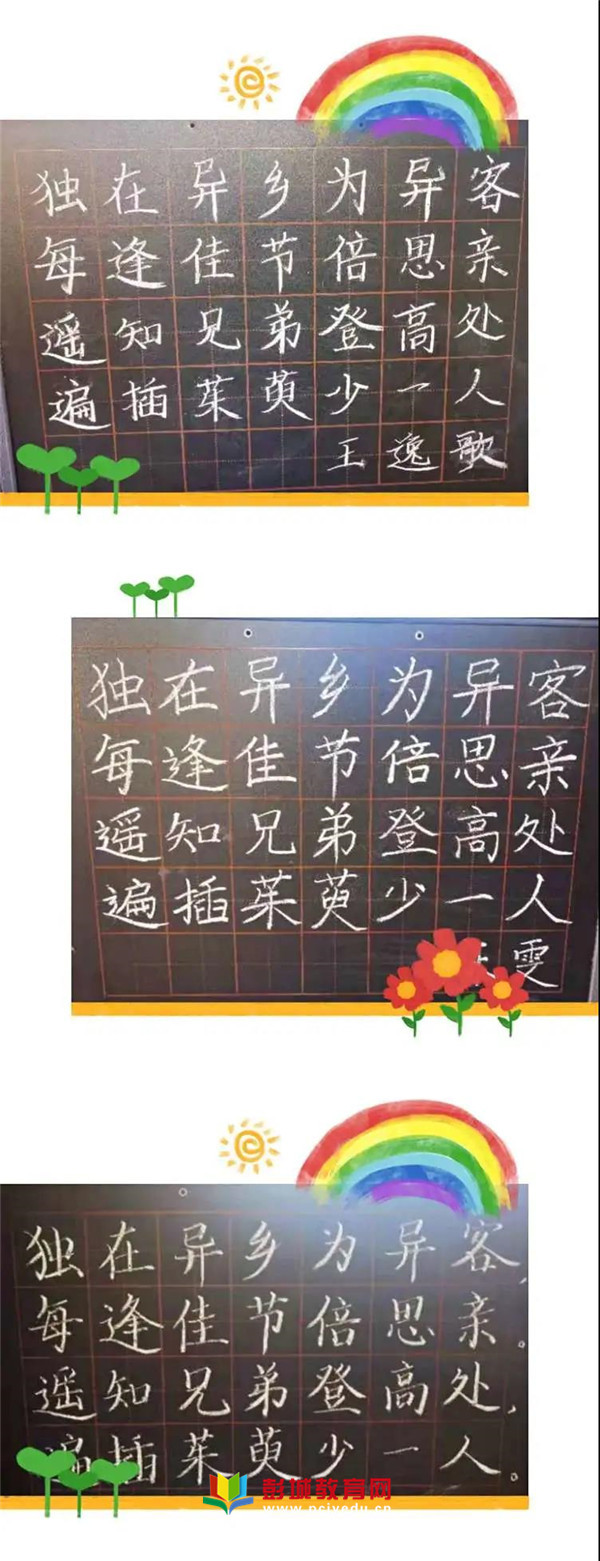 独在异乡为异客
每逢佳节倍思亲
遥知兄弟登高处
遍插茱萸少一人
王逸歌
独在异乡为异客
每逢佳节倍思亲
遥知兄弟登高处
遍插茱萸少一人
雯
独在异乡为异客,
每逢佳节倍思亲。
遥知兄弟登高处,
遍插茱萸少一人。
彭城教育网
www.pcjyedu.cn